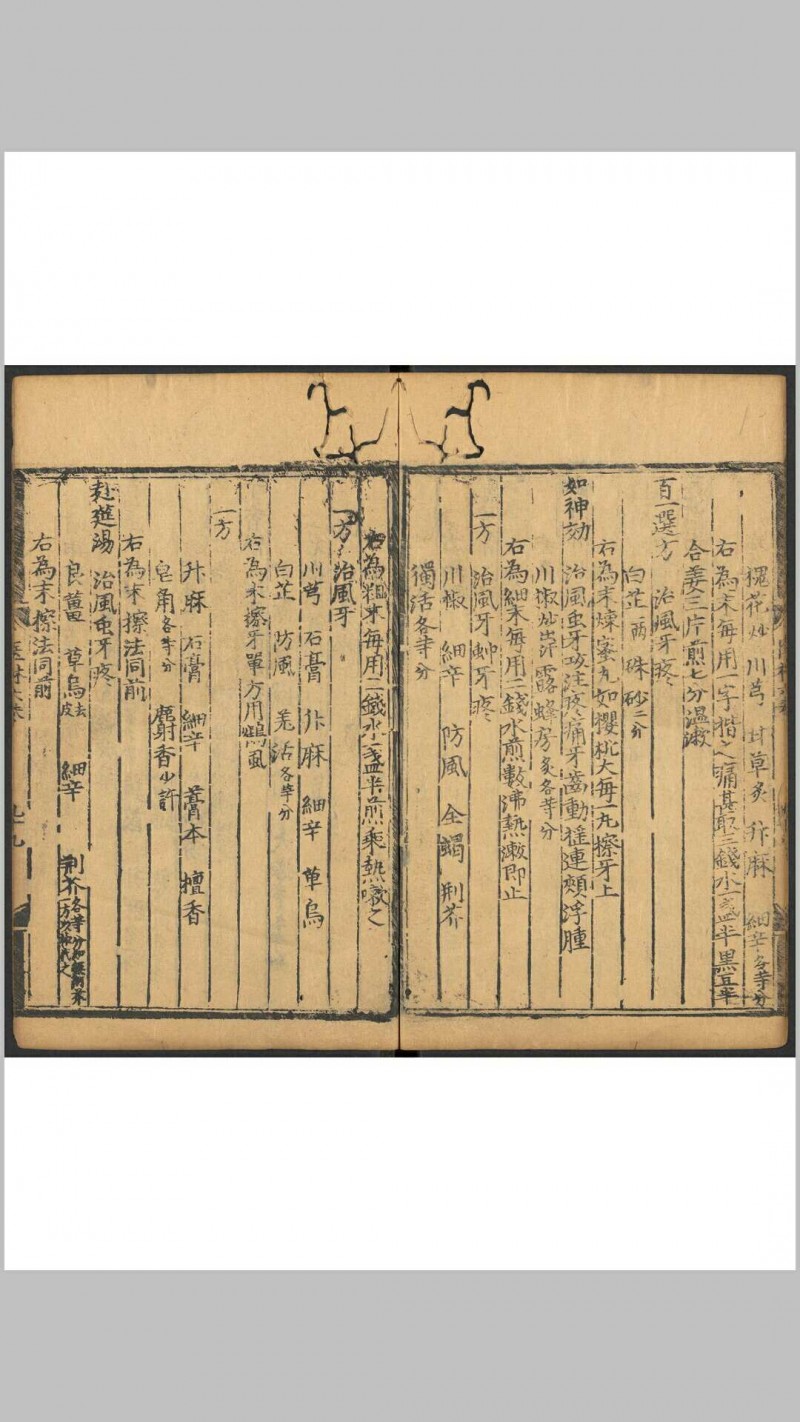 槐花炒 川芎 甘草炙 升麻 細辛各等分
右為末每用一字揩之痛甚取三錢水一盞半黑豆半
合姜三片煎七分温漱
百一選方 治風牙疼
白芷一两 硃砂二分
右為末煉蜜丸如櫻桃大每一丸擦牙上
如神効 治風虫牙攻注疼痛牙齒動摇連頰浮腫
川椒炒出汗 露蜂房炙各等分
右為細末每用二錢水煎數沸熱漱即止
一方 治風牙蚛牙疼
川椒 細辛 防風 全蝎 荆芥
獨活各等分
右為粗末每用二錢水一盞半煎乘熱漱之
一方 治風牙
川芎 石膏 升麻 細辛 草烏
白芷 防風 羌活各等分
右為末擦牙單方用
一方
升麻 石膏 細辛 藁本 檀香
皂角各等分 麝香少許
右為末擦法同前
赴筵湯 治風虫牙疼
良薑 草烏去皮 細辛 荆芥各等分
右為末擦法同前